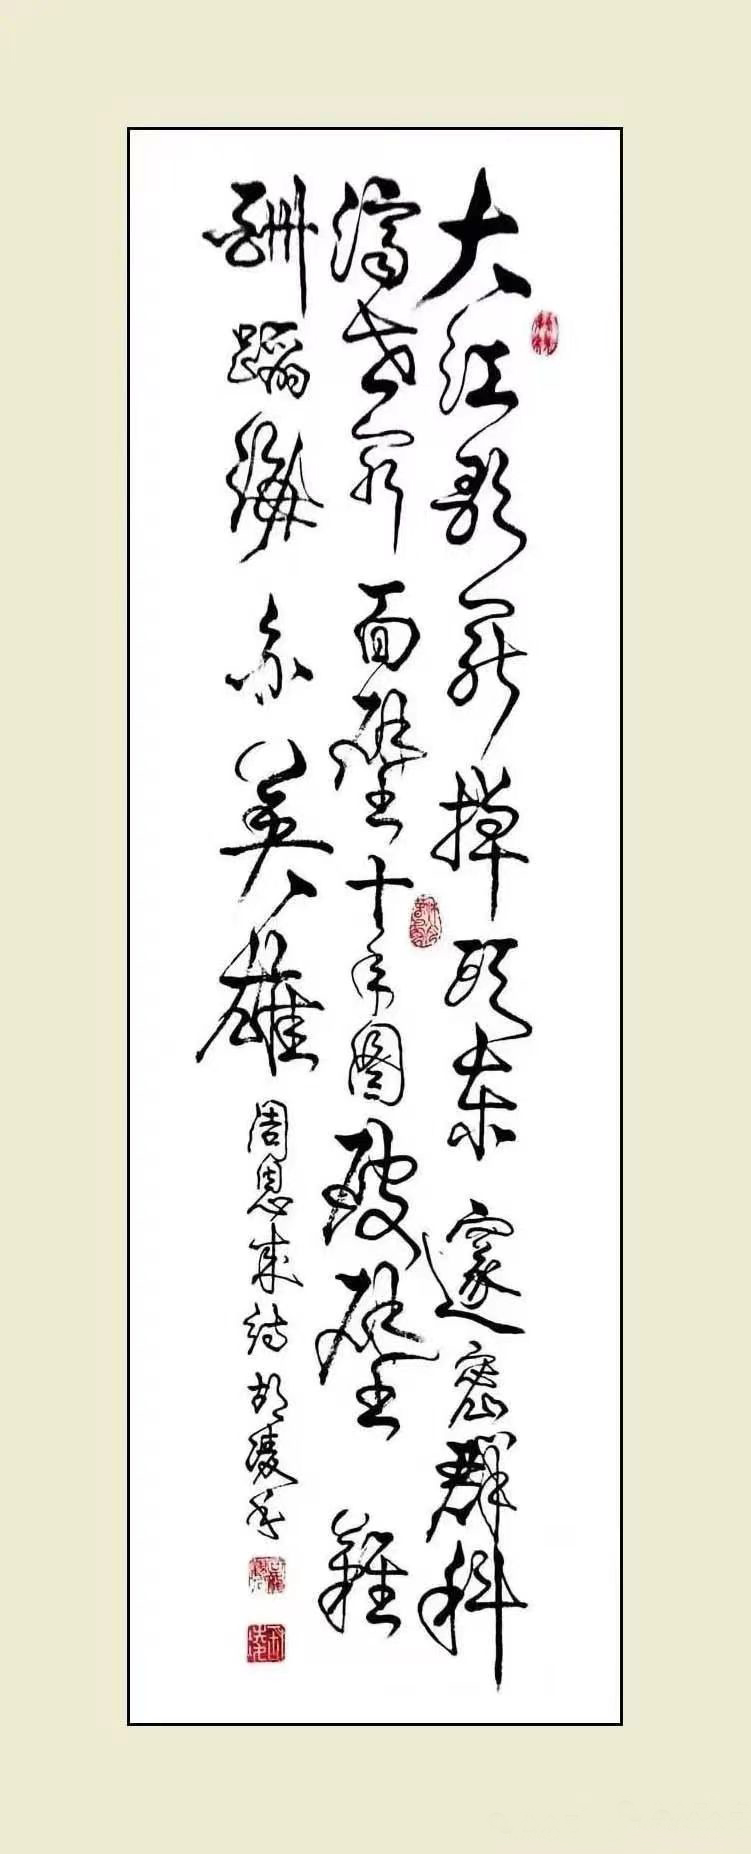 大江歌罢掉头东邃密群科
济世穷面壁十年图破壁难
酬蹈海亦英雄
周恩来诗胡凌书